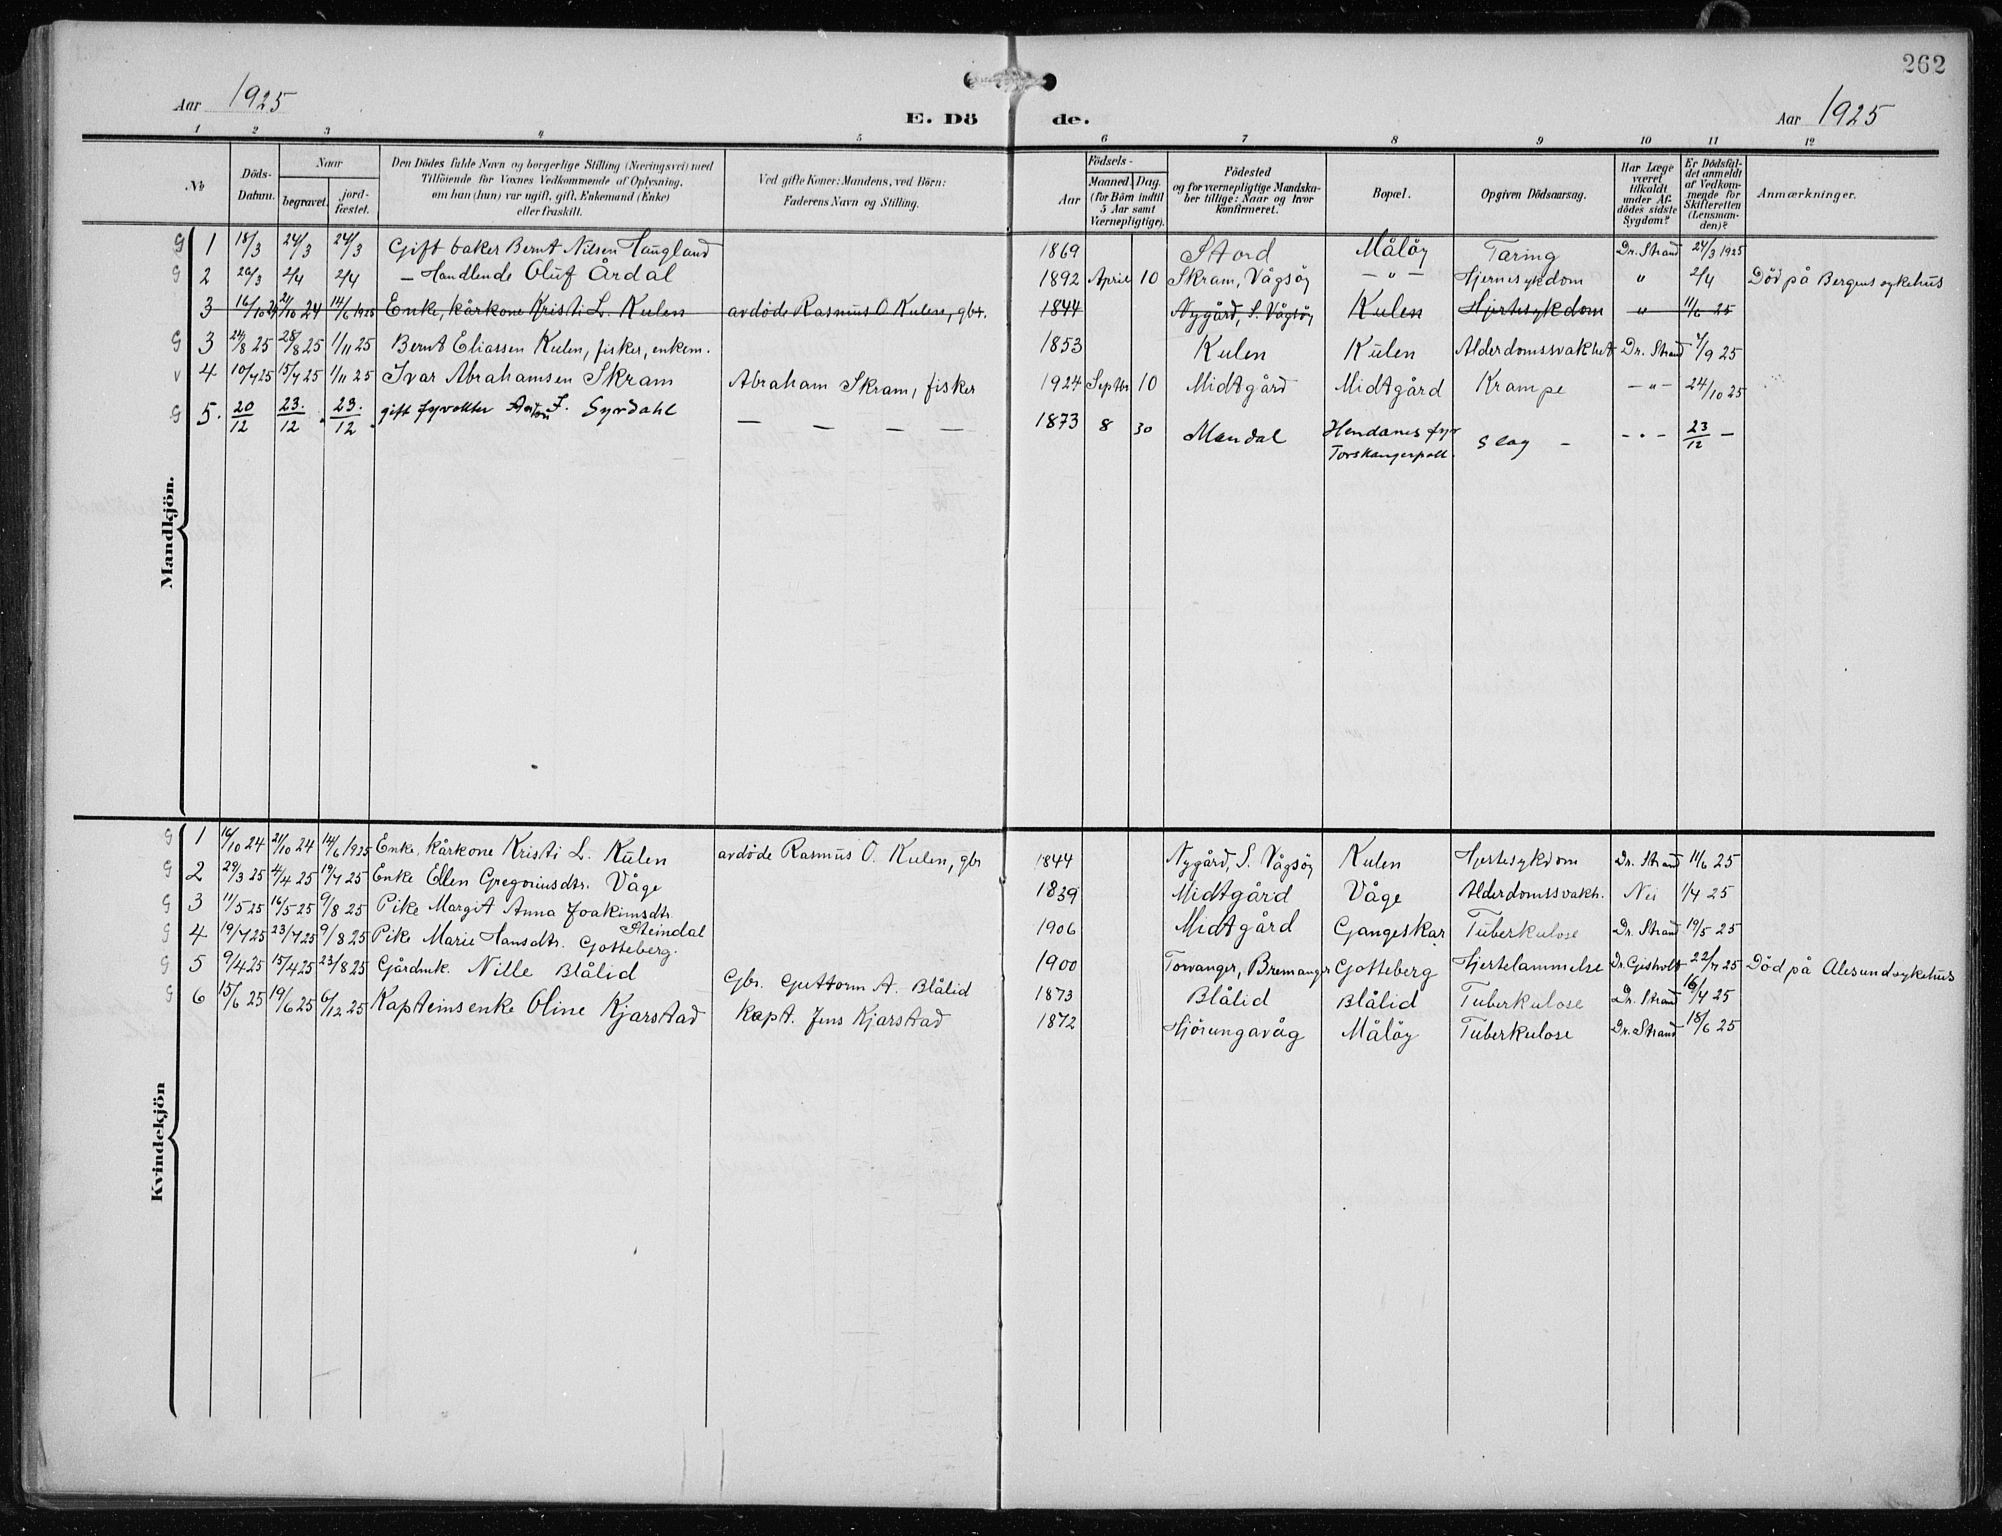 262
Aar 1925 E. Dö de. Aar 1925
1 2 3 4 5 6 7 8 9 10 11 12
No Döds-Datum. Naar begravet. jord-fæstet. Den Dödes fulde Navn og borgerlige Stilling (Næringsvei) med Tilföiende for Voxnes Vedkommende af Oplysning. om han (hun) var ugift, gift, Enkemand (Enke) eller fraskilt. Ved gifte Koner: Mandens, ved Börn: Faderens Navn og Stilling. Födsels- Aar Maaned. Dag. (for Börn indtil 5 Aar samt Værnepligtige). Födested og for værnepligtige Mandska-ber tillige: Naar og hvor Konfirmeret. Bopæl. Opgiven Dödsaarsag. Har Læge været tilkaldt under Af-dödes sidste Sygdom? Er Dödsfal-det anmeldt af Vedkom-mende for Skifteretten (Lensman-den)? Anmærkninger.
Mandkjön.
G 1 18/3 24/3 24/3 Gift baker Bernt Nilsen Haugland 1869 Stord Måløy Tæring Dr. Strand 24/3 1925
G 2 26/3 2/4 2/4 — Handlende Oluf Årdal 1892 April 10 Skram, Vågsøy — " — Hjernesykdom " 2/4 Död på Bergens sykehus
3 16/10 24 21/10 24 14/6 1925 Enke, kårkone Kristi L. Kulen avdöde Rasmus O. Kulen, gbr. 1844 Nygård, S. Vågsöy Kulen Hjertesykdom " 11/6 25
G 3 24/8 25 28/8 25 1/11 25 Bernt Eliassen Kulen, fisker, enkem. 1853 Kulen Kulen Alderdomssvakhet Dr. Strand /9 25
v 4 10/7 25 15/7 25 1/11 25 Ivar Abrahamsen Skram Abraham Skram, fisker 1924 Septbr 10 Midtgård Midtgård Krampe — " — 24/10 25
G 5. 20/12 23/12 23/12 gift fyrvokter Anton F. Syrdahl — — — — 1873 8 30 Mandal Hendanes fyr Torskangerpoll. Slag — — " — 23/12 —
Kvindekjön
G 1 16/10 24 21/10 24 14/6 1925 Enke, kårkone Kristi L. Kulen avdöde Rasmus O. Kulen, gbr 1844 Nygård, S. Vågsöy Kulen Hjertesykdom Dr. Strand 11/6 25
G 2 29/3 25 4/4 25 19/7 25 Enke Ellen Gregoriusdtr. Våge 1839 Midtgård Våge Alderdomssvakh. Nei 1/4 25
G 3 11/5 25 16/5 25 9/8 25 Pike Margit Anna Joakimsdtr. Steindal 1906 Midtgård Gangeskar Tuberkulose Dr. Strand 19/5 25
G 4 19/7 25 23/7 25 9/8 25 Pike Marie Hansdtr. Gotteberg. 1900 Torvanger, Bremanger Gotteberg Hjertelammelse Dr. Gjsholt 22/7 25 Död på Alesund sykehus
G 5 9/4 25 15/4 25 23/8 25 Gårdmk. Nille Blålid Gbr. Guttorm A. Blålid 1873 Blålid Blålid Tuberkulose Dr. Strand 16/4 25
G 6 15/6 25 19/6 25 6/12 25 Kapteinsenke Oline Kjarstad Kapt. Jens Kjarstad 1872 Hjörungavåg Måløy Tuberkulose Dr. Strand 18/6 25